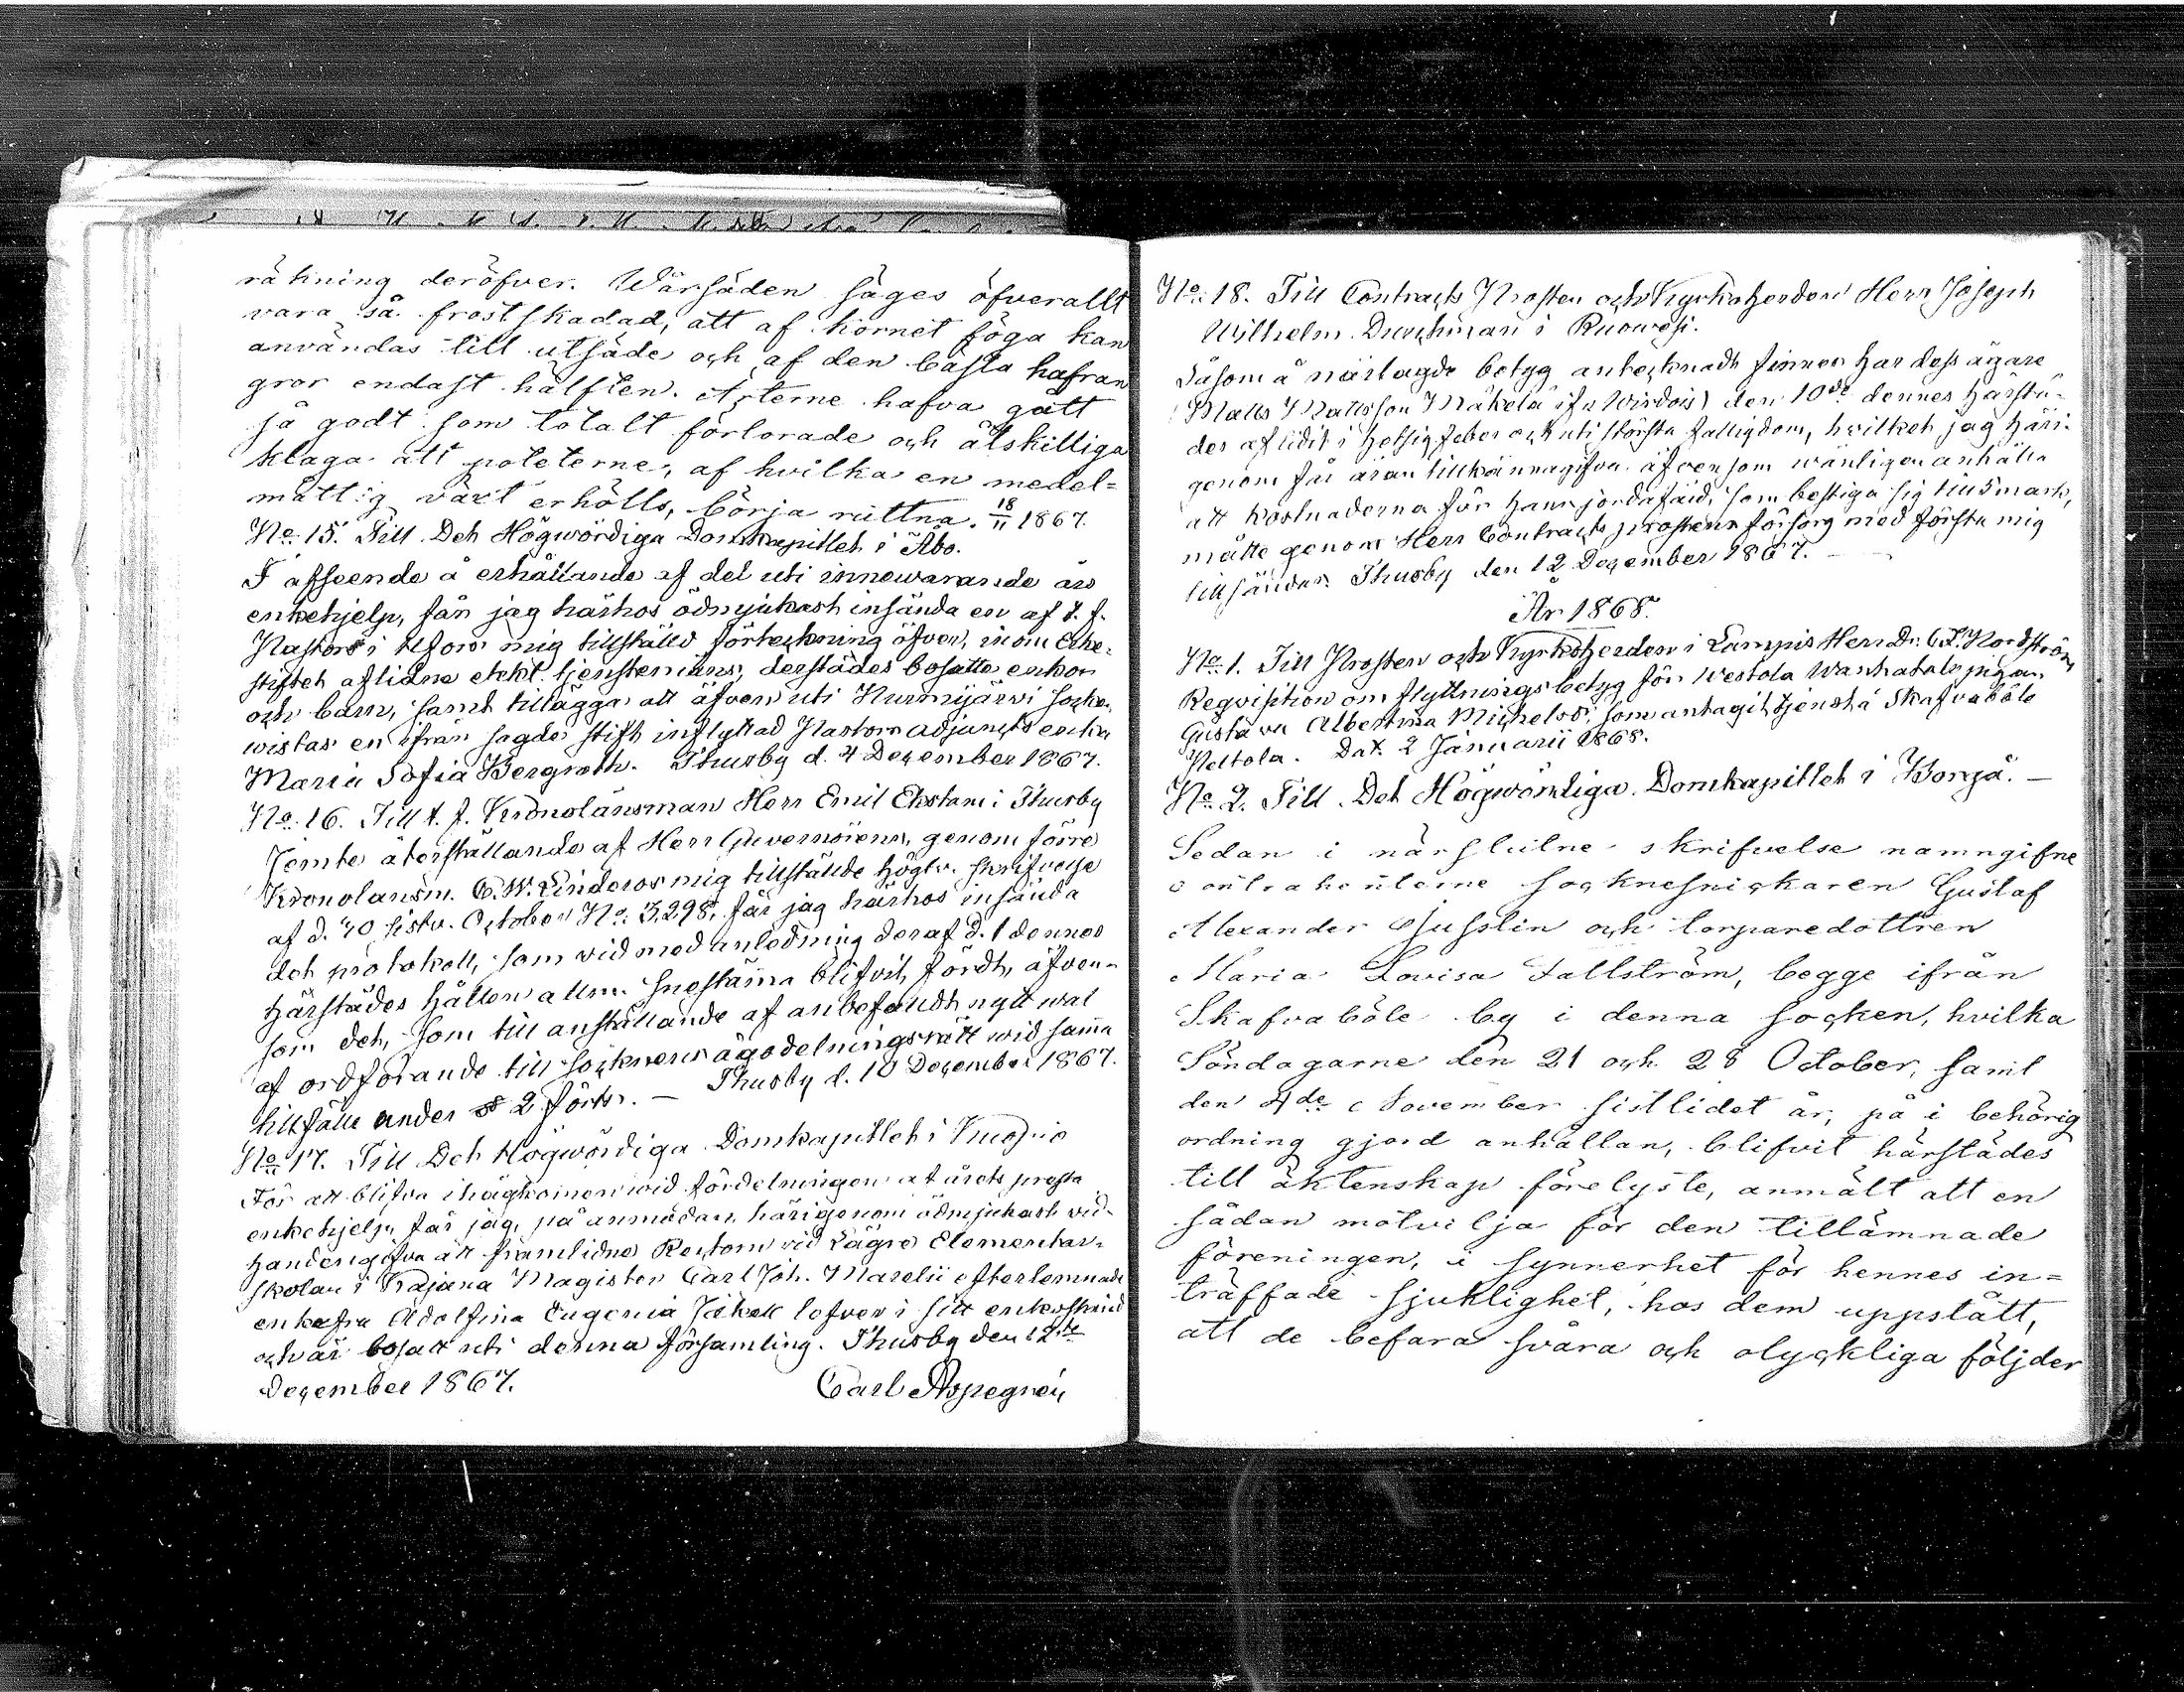 räkning deröfver. Wårsäden säges öfverallt
vara så frostskadad, att af kornet föga kan
användas till utsäde och af den bästa hafran
gror endast hälften. Ärterne hafva gått
så godt som totalt förlorade och åtskilliga
klaga att poteterne, af hvilka en medel-
måttig växt erhölls, börja ruttna. 18/11 1867.
No. 15. Till Det Högwördiga Domkapitlet i Åbo.
I afseende å erhållande af del uti innewarande års
enkehjelp, får jag härhos ödmjukast insända en af t. f.
Pastorn i mig tillställd förteckning öfver, inom Erke-
stiftet aflidne eckl. tjenstemäns, derstädes bosatte enkor
och barn, samt tillägga att äfven uti Nurmijärvi socken
wistas en ifrån sagde stift inflyttad Pastors adjuncts enka
Maria Sofia Bergroth. Thusby d. 4 December 1867.
No. 16. Till t. f. Kronolänsman Herr Emil Ekstam i Thusby
Jemte återställande af Herr Guvernörens, genom förre
Kronolänsm. C. W. Linderos mig tillstälde högtv. skrifvelse
af d. 30 sistv. October No. 3,298, får jag härhos insända
det protokoll, som wid med anledning deraf d. 1 dennes
härstädes hållen allm. snestämma blifvit fördt, äfven-
som det, som till anställande af anbefaldt nytt wal
af ordförande till socknens ägodelningsrätt wid samma
tillfälle under 2 förts. — Thusby d. 10 December 1867.
No. 17. Till Det Högwördiga Domkapitlet i Kuopio
För att blifva ihågkommen wid fördelningen af årets presta
enkehjelp, får jag, på anmodan, härigenom ödmjukast vid-
handengifva att framlidne Rectorn vid Lägre Elementar-
skolan i Kajana Magister Carl Joh. Marelii efterlemnade
enkefru Adolfina Eugenia Jäkel lefver i sitt enkestånd
och är bosatt uti denna församling. Thusby den 12te
December 1867. Carl Aspegrén
No. 18. Till Contracts Prosten och Kyrkoherden Herr Joseph
Wilhelm Durchman i Ruowesi.
Såsom å närlagde betyg antecknadt finnes har dess ägare
Matts Mattsson Mäkelä ifr. Wirdois den 10de dennes härstä-
des aflidit i hetsig feber och uti största fattigdom, hvilket jag häri-
genom får äran tillkännagifva äfvensom wänligen anhålla
att kostnaderna för hans jordafärd, som bestiga sig till 5 mark,
måtte genom Herr Contracts prostens försorg med första mig
tillsändas. Thusby den 12 December 1867. —
År 1868.
No. 1. Till Prosten och Kyrkoherden i Lampis Herr Dr. C. L. Nordström
Reqvisition om flyttningsbetyg för Westola Wanhatalo pigan
Gustava Albertina Michelsd:r, som antagit tjenst å Skafvaböle
Peltola. Dat. 2 Januarii 1868.
No. 2. Till Det Högwördiga Domkapitlet i Borgå. —
Sedan i närslutne skrifvelse namngifne
contrahenterne socknesnickaren Gustaf
Alexander Jusslin och torparedottren
Maria Lovisa Fallström, begge ifrån
Skafvaböle by i denna socken, hvilka
Söndagarne den 21 och 28 October, samt
den 4de November sistlidet år, på i behörig
ordning gjord anhållan, blifvit härstädes
till äktenskap förelyste, anmält att en
sådan motvilja för den tillämnade
föreningen, i synnerhet för hennes in-
träffade sjuklighet, hos dem uppstått,
att de befara svåra och olyckliga följder